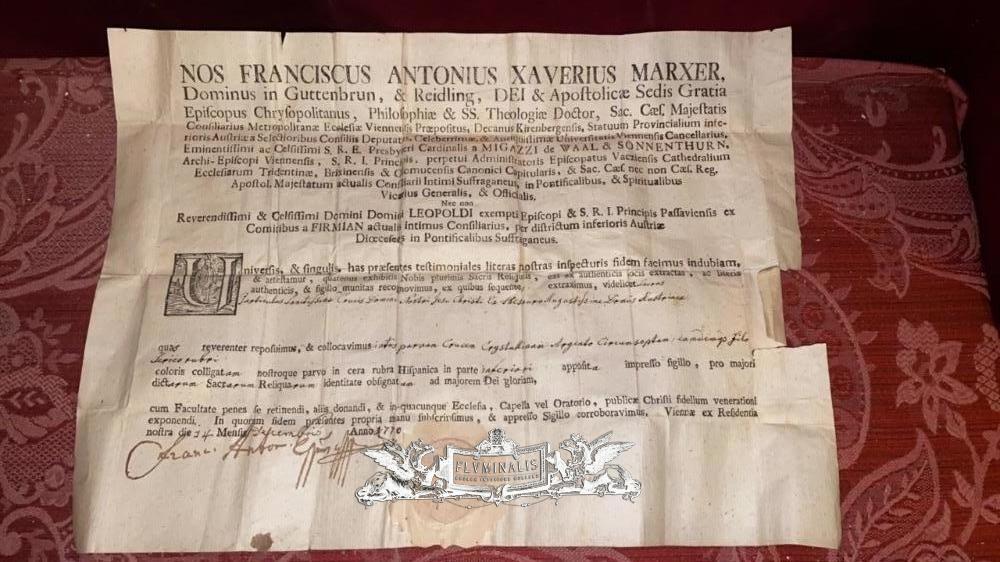 NOS FRANCISCUS ANTONIUS XAVERIUS MARXER,
Dominus in Guttenbrun, & Reidling, DEI & Apostolicæ Sedis Gratia
Episcopus Chrysopolitanus, Philosophiæ & SS. Theologiæ Doctor, Sac. Cæs. Majestatis
Consiliarius Metropolitanæ Ecclesiæ Viennensis Præpositus, Decanus Kirenbergensis, Statuum Provincialium infe-
rioris Austriæ Selectioribus Consiliis Deputatus, Celeberrimæ, & Antiquissimæ Universitatis Viennensis Cancellarius,
Eminentissimi ac Celsissimi S. R. E. Presbyteri Cardinalis a MIGAZZI de WAAL & SONNENTHURN,
Archi-Episcopi Viennensis, S. R. I. Principis, perpetui Administratoris Episcopatus Vacziensis Cathedralium
Ecclesiarum Tridentinæ, Brixinensis & Olomucensis Canonici Capitularis, & Sac. Cæs. nec non Cæs. Reg.
Apostol. Majestatum actualis Consiliarii Intimi Suffraganeus, in Pontificalibus, & Spiritualibus
Vicarius Generalis, & Officialis,
Nec non
Reverendissimi & Celsissimi Domini Domini LEOPOLDI exempti Episcopi & S. R. I. Principis Passaviensis ex
Comitibus a FIRMIAN actualis Intimus Consiliarius, per districtum inferioris Austriæ
Diœceseos in Pontificalibus Suffraganeus.
Universis, & singulis, has præsentes testimoniales literas nostras inspecturis fidem facimus indubiam,
& attestamur, quatenus exhibitis Nobis plurimis Sacris Reliquiis, eas ex authenticis locis extractas, ac literis
authenticis, & sigillo munitas recognovimus, ex quibus sequentes, extraximus, videlicet
Particulas Sanctissimæ Crucis Domini Nostri Jesu Christi Ex Thesauro Augustissimæ Domus Austriacæ
quas reverenter reposuimus, & collocavimus intra parvam Crucem Crystallinam Argento Circumseptam,
Serico rubri
coloris colligatam nostroque parvo in cera rubra Hispanica in parte inferiori apposita impresso sigillo, pro majori
dictarum Sacrarum Reliquiarum identitate obsignatam ad majorem Dei gloriam,
cum Facultate penes se retinendi, aliis donandi, & in quacunque Ecclesia, Capella vel Oratorio, publicæ Christi fidelium venerationi
exponendi. In quorum fidem præsentes propria manu subscripsimus, & appresso Sigillo corroboravimus. Viennæ ex Residentia
nostra die 14 Mensis Septembris Anno 1770
Franc. Anton.
FLVMINALIS